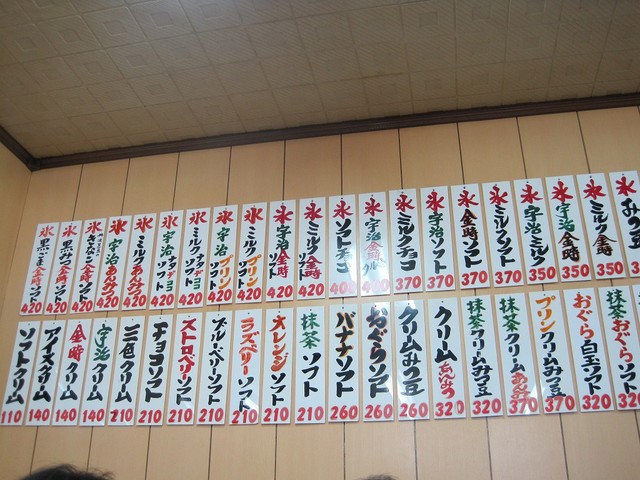 氷 黒ごま金時ソフト 420
氷 黒みつ金時ソフト 420
氷 きなこ金時ソフト 420
氷 宇治あんみつ 420
氷 ミルクあんみつ 420
氷 宇治ナタデココソフト 420
氷 ミルクナタデココソフト 420
氷 宇治プリンソフト 420
氷 ミルクプリンソフト 420
氷 宇治金時ソフト 420
氷 ミルク金時ソフト 420
氷 ソフトチョコ 400
氷 宇治金時ミルク 400
氷 ミルクチョコ 370
氷 宇治ソフト 370
氷 金時ソフト 370
氷 ミルクソフト 370
氷 宇治ミルク 350
氷 宇治金時 350
氷 ミルク金時 350
氷 みつ豆
ソフトクリーム 110
アイスクリーム 140
金時クリーム 140
宇治クリーム 140
三色クリーム 210
チョコソフト 210
ストロベリソフト 210
ブルーベリーソフト 210
ラズベリーソフト 210
オレンジソフト 210
抹茶ソフト 210
バナナソフト 260
おぐらソフト 260
クリームみつ豆 260
クリームあんみつ 320
抹茶クリームみつ豆 320
抹茶クリームあんみつ 370
プリンクリームみつ豆 370
おぐら白玉ソフト 320
抹茶おぐらソフト 320